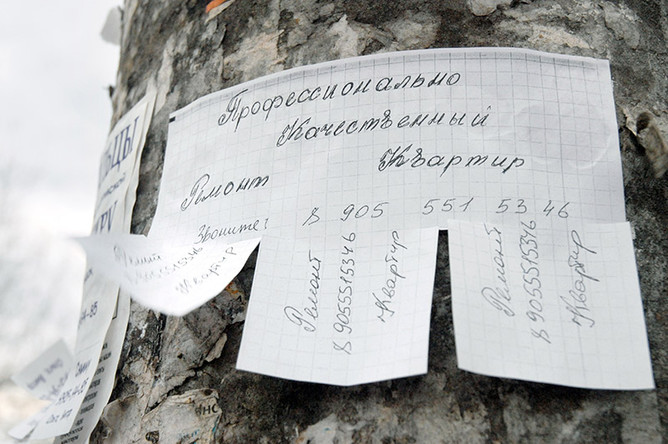 Профессионально
Качественный
Ремонт Квартир
Звоните 8 905 551 53 46
Ремонт
89055515346
Квартир
Ремонт
89055515346
Квартир
Квартир
ЬЦЫ
РУ